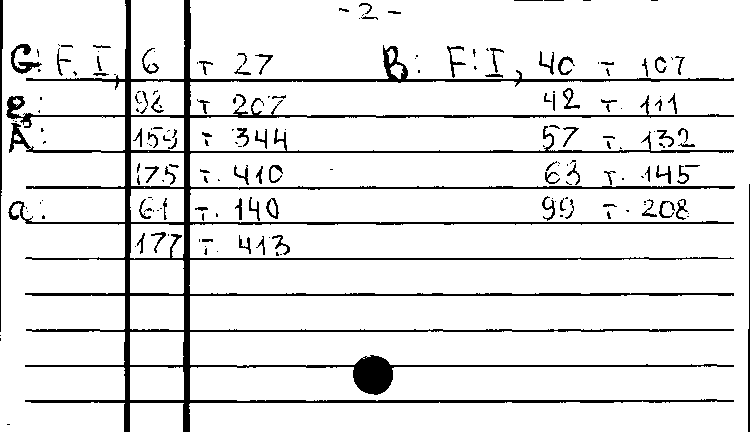 - 2 -
G: F. I, 6 т 27 B: F. I, 40 т 107
g: 98 т 207 42 т. 111
A: 159 т. 344 57 т. 132
175 т. 410 63 т. 145
a: 61 т. 140 99 т. 208
177 т. 413